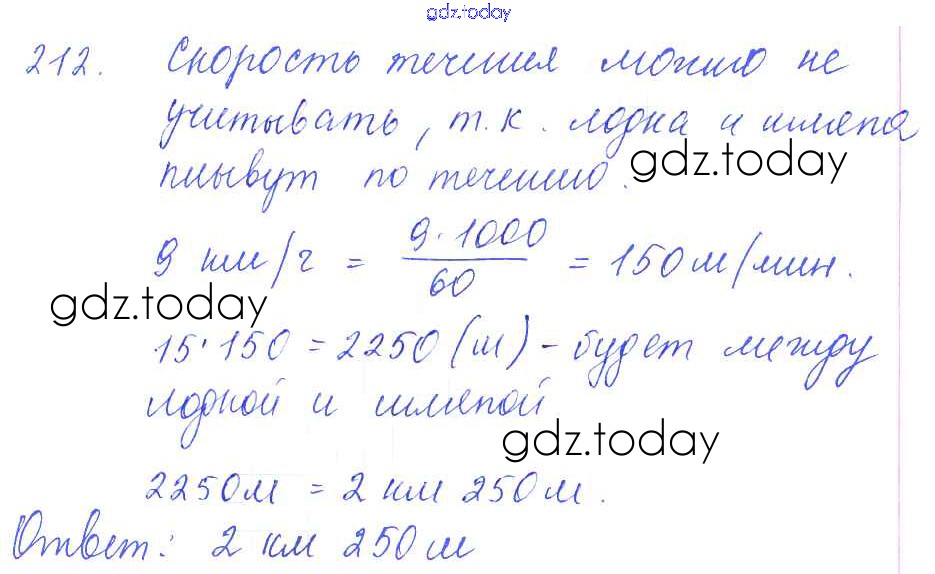 gdz.today
212. Скорость течения можно не
учитывать, т.к. лодка и шляпа
плывут по течению.
gdz.today
9 км/ч = 9·1000/60 = 150 м/мин.
gdz.today
15·150 = 2250 (м) - будет между
лодкой и шляпой
gdz.today
2250 м = 2 км 250 м.
Ответ: 2 км 250 м